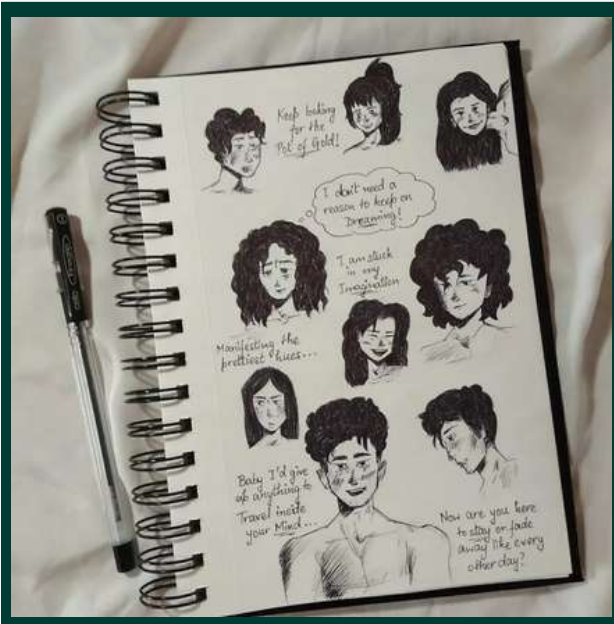 Keep looking
for the
Pot of Gold!
I don't need a
reason to keep on
Dreaming!
I am stuck
in my
Imagination
Manifesting the
prettiest hues...
Baby I'd give
up anything to
Travel inside
your Mind...
Now are you here
to stay or fade
away like every
other day?